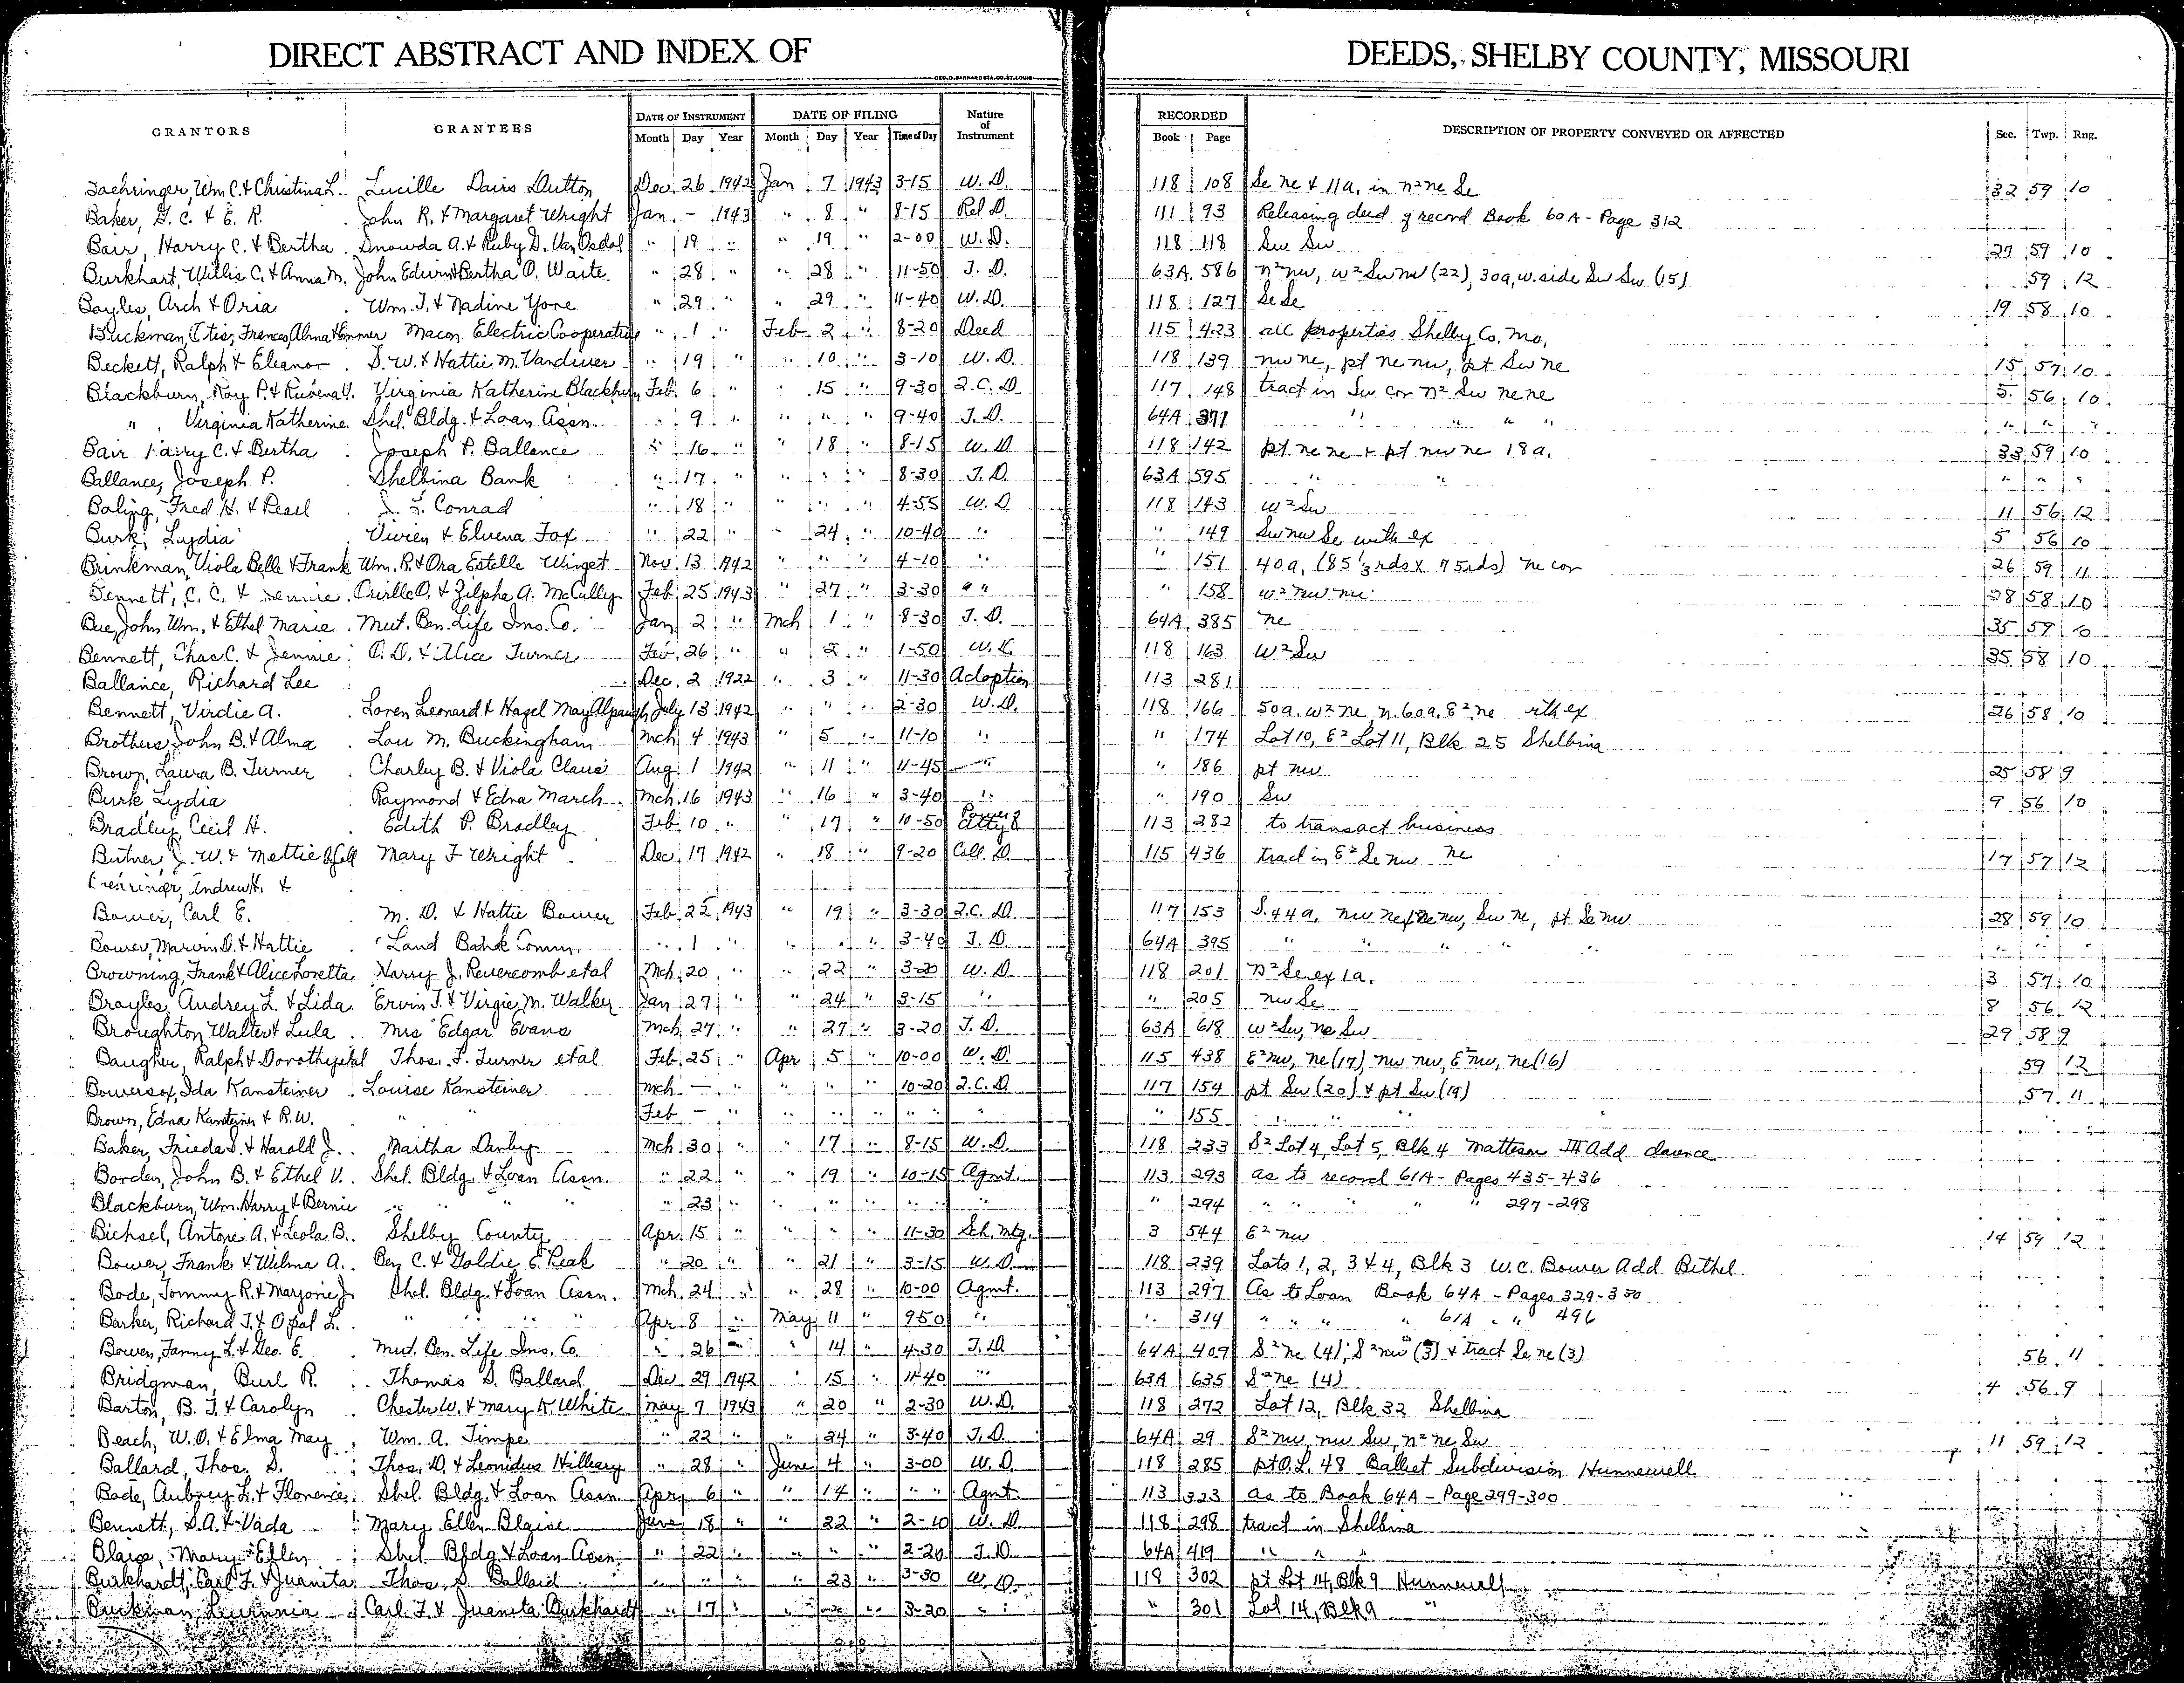 DIRECT ABSTRACT AND INDEX OF DEEDS, SHELBY COUNTY, MISSOURI
GEO. D. BARNARD STA. CO. ST. LOUIS
GRANTORS GRANTEES DATE OF INSTRUMENT DATE OF FILING Nature of Instrument RECORDED DESCRIPTION OF PROPERTY CONVEYED OR AFFECTED Sec. Twp. Rng.
Month Day Year Month Day Year Time of Day Book Page
Wm C. & Christina L. Lucille Davis Dutton Dec. 26 1942 Jan 7 1943 3-15 W.D. 118 108 Se ne & 11a. in n2 ne Se 32 59 10
Baker, G. C. & E. R. John R. & Margaret Wright Jan. - 1943 " 8 " 8-15 Rel D. 111 93 Releasing deed of record Book 60A - Page 312
Bair, Harry C. & Bertha Snowda A. & Ruby D. Van Osdol " 19 " " 19 " 2-00 W.D. 118 118 Sw Sw 27 59 10
Burkhart, Willis C. & Anna M. John Edwin & Bertha O. Waite " 28 " " 28 " 11-50 T.D. 63A 586 n2 nw, w2 Sw nw (22), 30a, w. side Sw Sw (15) 59 12
Bayles, Arch & Oria Wm. T. & Nadine Yore " 29 " " 29 " 11-40 W.D. 118 127 Se Se 19 58 10
Buckman, Otis, Frances, Alma & Emmer Macon Electric Cooperative " 1 " Feb 2 " 8-20 Deed 115 423 all properties Shelby Co. Mo.
Beckett, Ralph & Eleanor S. W. & Hattie M. Vandiver " 19 " " 10 " 3-10 W.D. 118 139 nw ne, pt ne nw, pt Sw ne 15 57 10
Blackburn, Roy P. & Rubena V. Virginia Katherine Blackburn Feb. 6 " " 15 " 9-30 Q.C.D. 117 148 tract in Sw cor n2 Sw ne ne 5 56 10
" Virginia Katherine Shel. Bldg. & Loan Assn. " 9 " " " " 9-40 T.D. 64A 377 " " " " " " "
Bair Harry C. & Bertha Joseph P. Ballance " 16 " " 18 " 8-15 W.D 118 142 pt ne ne & pt nw ne 18a. 33 59 10
Ballance, Joseph P. Shelbina Bank " 17 " " " " 8-30 T.D. 63A 595 " " " " "
Boling, Fred H. & Pearl J. L. Conrad " 18 " " " " 4-55 W.D 118 143 w2 Sw 11 56 12
Burk, Lydia Vivien & Elvena Fox " 22 " " 24 " 10-40 " " 149 Sw nw Se with ex 5 56 10
Brinkman, Viola Belle & Frank Wm. R. & Ora Estelle Winget Nov. 13 1942 " " " 4-10 " " 151 40a. (85 1/3 rds x 75 rds) ne cor 26 59 11
Bennett, C. C. & Jennie Orville O. & Zilpha A. McCully Feb. 25 1943 " 27 " 3-30 " " " 158 w2 nw nw 28 58 10
Bue, John Wm. & Ethel Marie Mut. Ben. Life Ins. Co. Jan. 2 " Mch 1 " 8-30 T.D. 64A 385 ne 35 59 10
Bennett, Chas C. & Jennie O. D. & Alice Turner Feb. 26 " " 2 " 1-50 W.D. 118 163 W2 Sw 35 58 10
Ballance, Richard Lee Dec. 2 1922 " 3 " 11-30 Adoption 113 281
Bennett, Virdie A. Loren Leonard & Hazel May Alpaugh July 13 1942 " " " 2-30 W.D. 118 166 50a. w2 ne, n. 60a. E2 ne with ex 26 58 10
Brothers, John B. & Alma Lou M. Buckingham Mch 4 1943 " 5 " 11-10 " " 174 Lot 10, E2 Lot 11, Blk 25 Shelbina
Brown, Laura B. Turner Charley B. & Viola Claus Aug. 1 1942 " 11 " 11-45 " " 186 pt nw 25 58 9
Burk Lydia Raymond & Edna March Mch. 16 1943 " 16 " 3-40 " " 190 Sw 9 56 10
Bradley, Cecil H. Edith P. Bradley Feb. 10 " " 17 " 10-50 Power of Atty 113 282 to transact business
Butner, J. W. & Mettie by Coll Mary F Wright Dec. 17 1942 " 18 " 9-20 Coll. D. 115 436 tract in E2 Se nw ne 17 57 12
Andrew H. &
Bower, Carl E. M. D. & Hattie Bower Feb. 22 1943 " 19 " 3-30 Q.C.D. 117 153 S. 44a. nw ne, pt ne nw, Sw ne, pt Se nw 28 59 10
Bower, Marvin D. & Hattie Land Bank Comm. " 1 " " " " 3-40 T.D. 64A 395 " " " " " " "
Browning, Frank & Alice Loretta Harry J. Revercomb etal Mch. 20 " " 22 " 3-20 W.D. 118 201 n2 Se ex 1a. 3 57 10
Broyles, Audrey L. & Lida Ervin T. & Virgie M. Walker Jan 27 " " 24 " 3-15 " " 205 nw Se 8 56 12
Broughton Walter & Lula Mrs Edgar Evans Mch. 27 " " 27 " 3-20 T.D. 63A 618 w2 Sw, ne Sw 29 58 9
Baugher, Ralph & Dorothy etal Thos. P. Turner etal Feb. 25 " Apr 5 " 10-00 W.D. 115 438 E2 nw, ne (17), nw nw, E2 nw, ne (16) 59 12
Bowersox, Ida Kansteiner Louise Kansteiner Mch. - " " " " 10-20 Q.C.D 117 154 pt Sw (20) & pt Sw (19) 57 11
Brown, Edna Kansteiner & R.W. " " Feb - " " " " " " " " 155 " " " "
Baker, Frieda S. & Harold J. Martha Danby Mch 30 " " 17 " 8-15 W.D. 118 233 S2 Lot 4, Lot 5, Blk 4 Matteson III Add Clarence
Borden, John B. & Ethel V. Shel. Bldg. & Loan Assn. " 22 " " 19 " 10-15 Agmt. 113 293 as to record 61A - Pages 435-436
Blackburn, Wm. Harry & Bernie " " " " " 23 " " " " " " " 294 " " " " " 297-298
Bichsel, Antone A. & Leola B. Shelby County Apr. 15 " " " " 11-30 Sch. Mtg. 3 544 E2 nw 14 59 12
Bower, Frank & Wilma A. Ben C. & Goldie E. Peak " 20 " " 21 " 3-15 W.D. 118 239 Lots 1, 2, 3 & 4, Blk 3 W.C. Bower Add Bethel
Bode, Tommy R. & Marjorie J. Shel. Bldg. & Loan Assn. Mch. 24 " " 28 " 10-00 Agmt. 113 297 As to Loan Book 64A - Pages 329-330
Barker, Richard T. & Opal L. " " " " Apr. 8 " May 11 " 9 50 " " 314 " " " " 61A " " 496
Bowen, Fanny L. & Geo. E. Mut. Ben. Life Ins. Co. " 26 " " 14 " 4-30 T.D. 64A 409 S2 ne (4), S2 nw (3) & tract Se ne (3) 56 11
Bridgman, Burl R. Thomas S. Ballard Dec 29 1942 " 15 " 11-40 " 63A 635 S2 ne (4) 4 56 9
Barton, B. T. & Carolyn Chester W. & Mary K. White May 7 1943 " 20 " 2-30 W.D. 118 272 Lot 12, Blk 32 Shelbina
Beach, W. O. & Elma May Wm. A. Timpe " 22 " " 24 " 3-40 T.D. 64A 29 S2 nw, nw Sw, n2 ne Sw 11 59 12
Ballard, Thos. S. Thos. D. & Leonidus Hilleary " 28 " June 4 " 3-00 W.D. 118 285 pt O.L. 48 Balliet Subdivision Hunnewell
Bode, Aubrey L. & Florence Shel. Bldg. & Loan Assn. Apr. 6 " " 14 " " " Agmt. 113 323 as to Book 64A - Page 299-300
Bennett, S. A. & Vada Mary Ellen Blaise June 18 " " 22 " 2-10 W.D. 118 298 tract in Shelbina
Blaise, Mary Ellen Shel. Bldg. & Loan Assn. " 22 " " " " 2-20 T.D. 64A 419 " " "
Burkhardt, Carl F. & Juanita Thos. S. Ballard " " " " 23 " 3-30 W.D. 118 302 pt Lot 14, Blk 9 Hunnewell
Buckman Carl F. & Juanita Burkhardt " 17 " " " " 3-20 " " 301 Lot 14, Blk 9 "